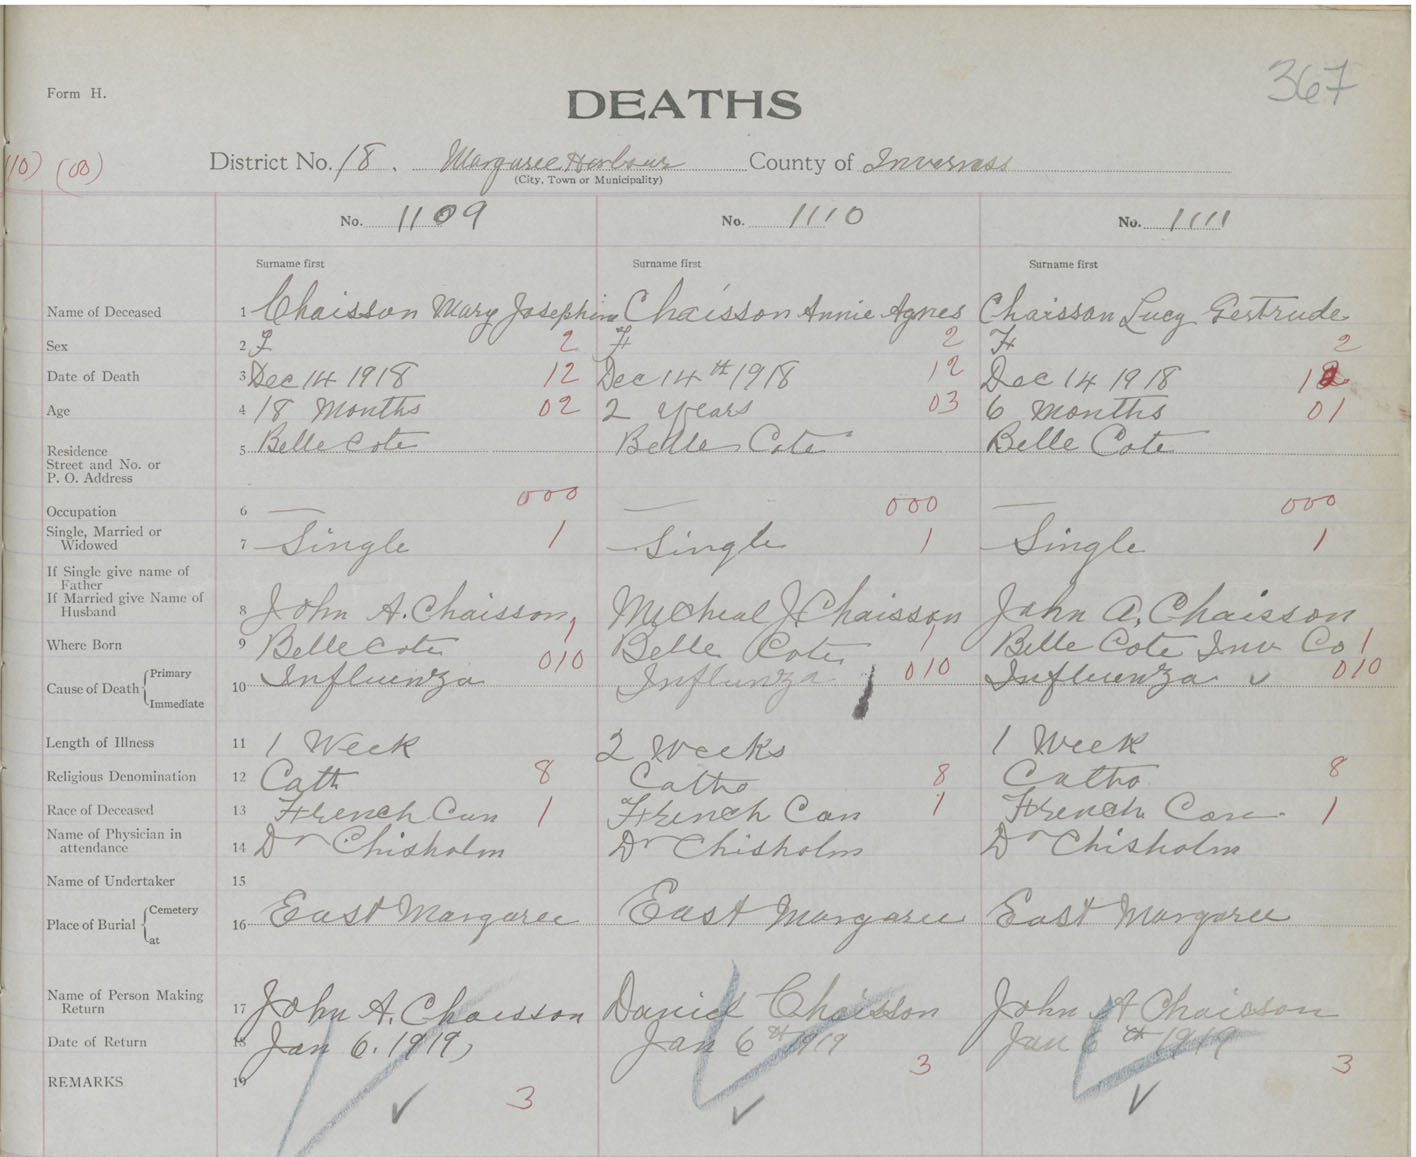 367
Form H.
DEATHS
(10) (00) District No. 18. Margaree Harbour County of Inverness
(City, Town or Municipality)
No. 1109 No. 1110 No. 1111
Surname first Surname first Surname first
Name of Deceased 1 Chaisson Mary Josephine Chaisson Annie Agnes Chaisson Lucy Gertrude
Sex 2 F 2 F 2 F 2
Date of Death 3 Dec 14 1918 12 Dec 14th 1918 12 Dec 14 1918 12
Age 4 18 Months 02 2 years 03 6 months 01
Residence 5 Belle Cote Belle Cote Belle Cote
Street and No. or
P. O. Address
000 000 000
Occupation 6 — — —
Single, Married or
Widowed 7 Single 1 Single 1 Single 1
If Single give name of
Father
If Married give Name of
Husband 8 John A. Chaisson, Micheal J Chaisson John A. Chaisson
Where Born 9 Belle Cote 1 Belle Cote 1 Belle Cote Inv Co 1
Cause of Death { Primary 10 Influenza 010 Influnza 010 Influenza 010
Immediate
Length of Illness 11 1 Week 2 Weeks 1 Week
Religious Denomination 12 Cath 8 Catho 8 Catho 8
Race of Deceased 13 French Can 1 French Can 1 French Can 1
Name of Physician in
attendance 14 Dr Chisholm Dr Chisholm Dr Chisholm
Name of Undertaker 15
Place of Burial { Cemetery 16 East Margaree East Margaree East Margaree
at
Name of Person Making
Return 17 John A. Chaisson Daniel Chaisson John A Chaisson
Date of Return 18 Jan 6. 1919, Jan 6th 1919 Jan 6th 1919
REMARKS 19 3 3 3